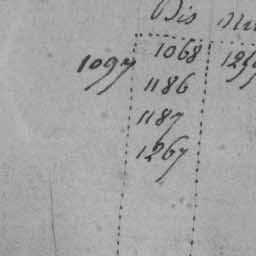 Bis
1097 1068
1186
1187
1267